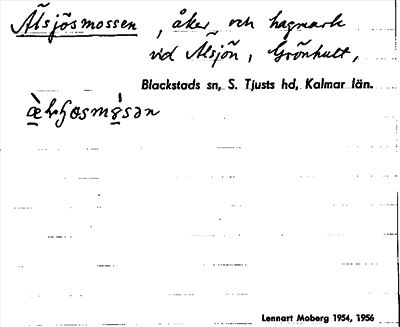 Älsjösmossen, åker och hagmark
vid Älsjön, Grönhult,
Blackstads sn, S. Tjusts hd, Kalmar län.
Lennart Moberg 1954, 1956